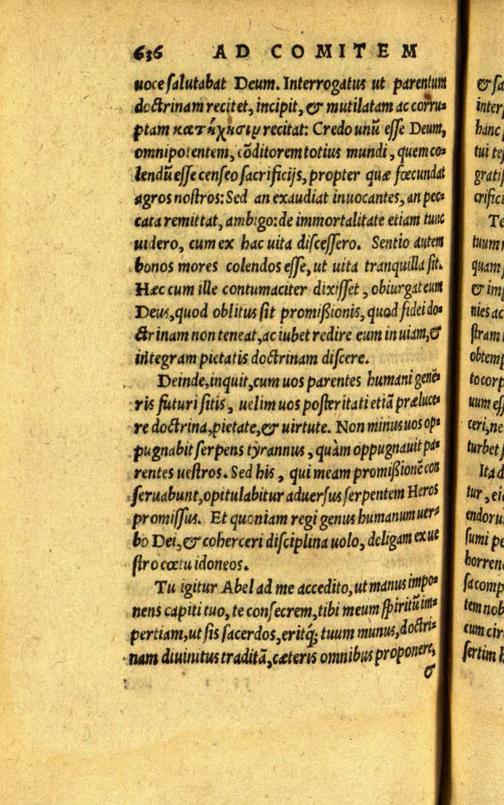 636 AD COMITEM
uoce salutabat Deum. Interrogatus ut parentum
doctrinam recitet, incipit, & mutilatam ac corru-
ptam κατήχησιν recitat: Credo unũ esse Deum,
omnipotentem, cõditorem totius mundi, quem co-
lendũ esse censeo sacrificijs, propter quæ fœcundat
agros nostros: Sed an exaudiat inuocantes, an pec-
cata remittat, ambigo: de immortalitate etiam tunc
uidero, cum ex hac uita discessero. Sentio autem
bonos mores colendos esse, ut uita tranquilla sit.
Hæc cum ille contumaciter dixisset, obiurgat eum
Deus, quod oblitus sit promißionis, quod fidei do-
ctrinam non teneat, ac iubet redire eum in uiam, &
integram pietatis doctrinam discere.
Deinde, inquit, cum uos parentes humani gene-
ris futuri sitis, uelim uos posteritati etiã præluce-
re doctrina, pietate, & uirtute. Non minus uos op-
pugnabit serpens tyrannus, quàm oppugnauit pa-
rentes uestros. Sed his, qui meam promißionẽ con
seruabunt, opitulabitur aduersus serpentem Heros
promissus. Et quoniam regi genus humanum uer-
bo Dei, & coherceri disciplina uolo, deligam ex ue
stro cœtu idoneos.
Tu igitur Abel ad me accedito, ut manus impo-
nens capiti tuo, te consecrem, tibi meum spiritũ im-
pertiam, ut sis sacerdos, eritq́; tuum munus, doctri-
nam diuinitus traditã, cæteris omnibus proponere,
&
& sa
inter
hanc
tui te
gratis
crifici
Te
tuum
quam
& im
nies ac
stram
obtemp
to corp
uum ess
ceri, ne
turbet
Ita d
tur, ei
endoru
sumi pe
horren
sa comp
tem nob
cum cir
sertim